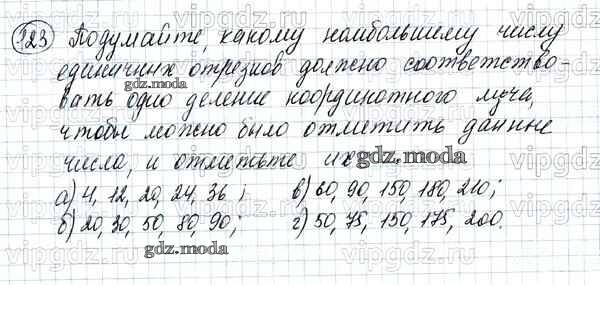 123 Подумайте, какому наибольшему числу
единичных отрезков должно соответство-
вать одно деление координатного луча,
чтобы можно было отметить данные
числа, и отметьте их
а) 4, 12, 20, 24, 36; в) 60, 90, 150, 180, 210;
б) 20, 30, 50, 80, 90; г) 50, 75, 150, 175, 200.
gdz.moda
gdz.moda
gdz.moda
vipgdz.com